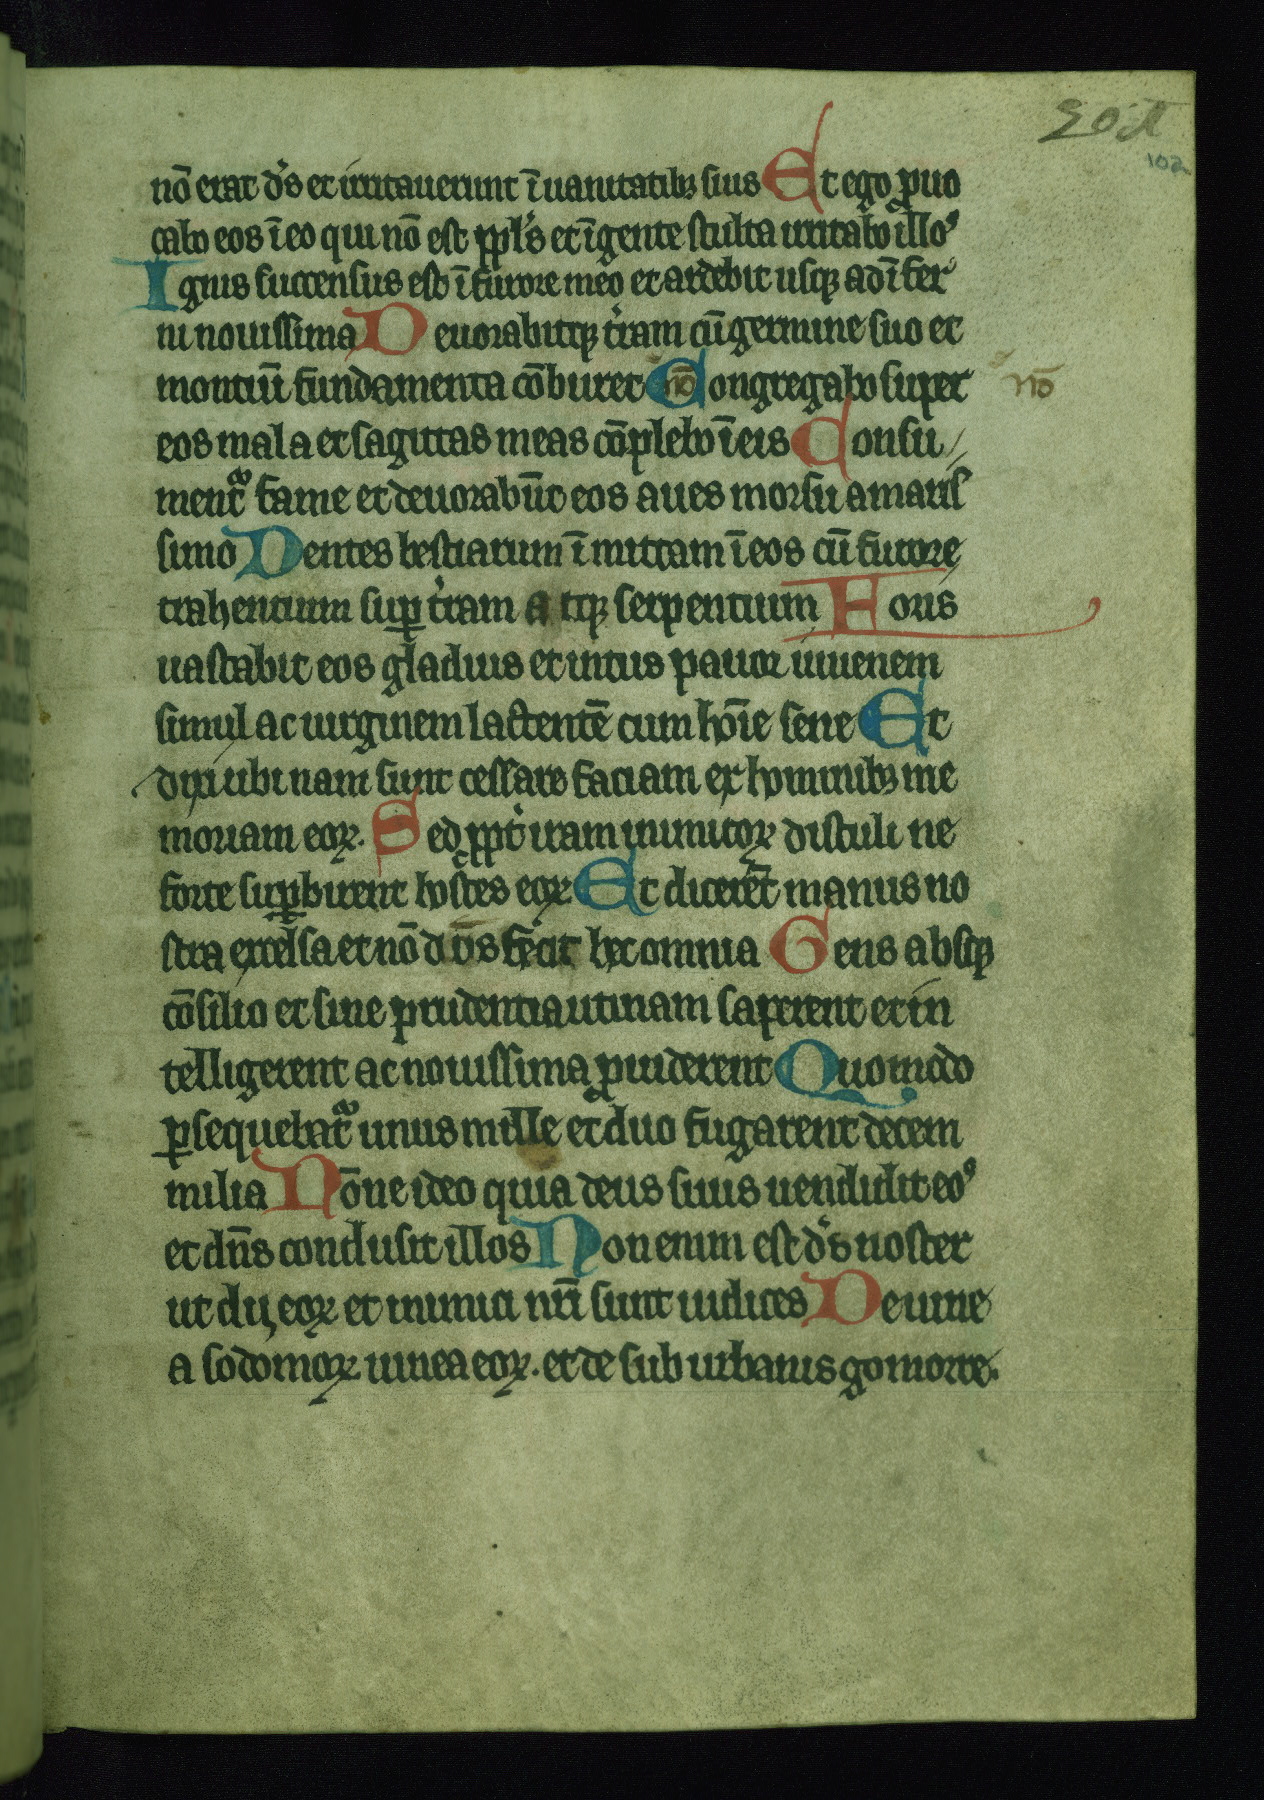 102
nō erat d̄s et irritauerunt ī uanitatibȝ suis Et ego ꝓuo
cabo eos ī eo qui nō est ppl's et īgente stulta irritabo illoꝰ
Ignis succensus est ī furore meo et ardebit usqꝫ ad ī fer
ni nouissima Deuorabitqꝫ t̄ram cū germine suo et
montiū fundamenta cōburet Congregabo super nō
eos mala et sagittas meas cōplebo ī eis Consu
ment᷑ fame et deuorabūt eos aues morsu amaris
simo Dentes bestiarum ī mittam ī eos cū furore
trahentium suꝑ t̄ram atqꝫ serpentium Foris
uastabit eos gladius et intus pauor iuuenem
simul ac uirginem lactentē cum hōīe sene Et
dixi ubi nam sunt cessare faciam ex hominibȝ me
moriam eoꝝ. Sed ppt̄ iram inimicoꝝ distuli ne
forte suꝑbirent hostes eoꝝ Et dicerēt manus no
stra excelsa et nō d d̄s fecit hec omnia Gens absqꝫ
cōsilio et sine prudentia utinam saperent et in
telligerent ac nouissima ꝓuiderent Quomodo
ꝑsequebat᷑ unus mille et duo fugarent decem
milia Nōne ideo quia deus suus uendidit eoꝰ
et dn̄s conclusit illos Non enim est d̄s noster
ut dij eoꝝ et inimici nr̄i sunt iudices De uine
a sodomoꝝ uinea eoꝝ. et de sub urbanis gomorre.